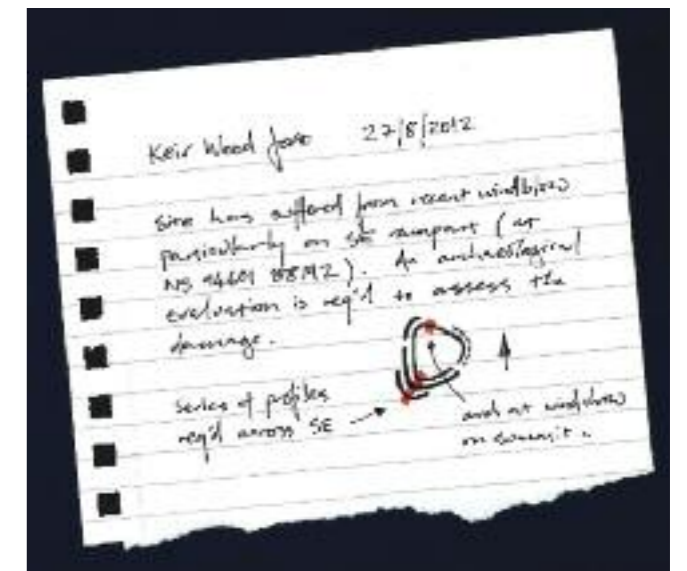 Keir Wood 27/8/2012
Site has suffered from recent windblow
particularly on rampart (at
NS ). An archaeological
evaluation is req'd to assess the
damage.
Series of profiles
req'd across SE
and at windblow
on summit.